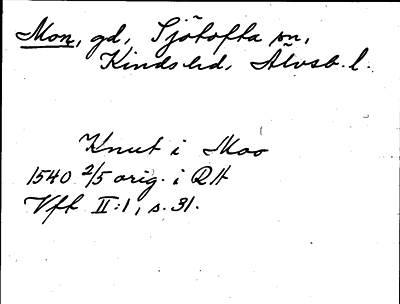 Mon, gd, Sjötofta sn,
Kinds hd, Älvsb. l.
Knut i Moo
1540 2/5 orig. i RA
Vff II:1, s. 31.